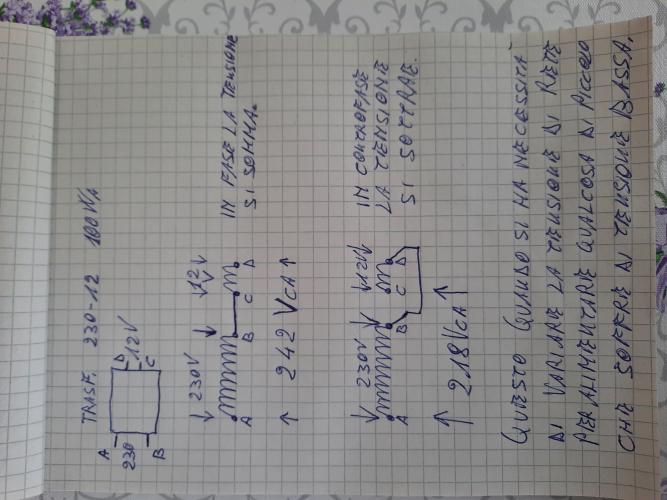 TRASF. 230-12 100WA
A D
230 12V
B C
230V 12V
A B C D
IN FASE LA TENSIONE
SI SOMMA.
242 VCA
230V 12V
A B C D
IN CONTROFASE
LA TENSIONE
SI SOTTRAE.
218 VCA
QUESTO QUANDO SI HA NECESSITÀ
DI VARIARE LA TENSIONE DI RETE
PER ALIMENTARE QUALCOSA DI PICCOLO
CHE SOFFRE DI TENSIONE BASSA.